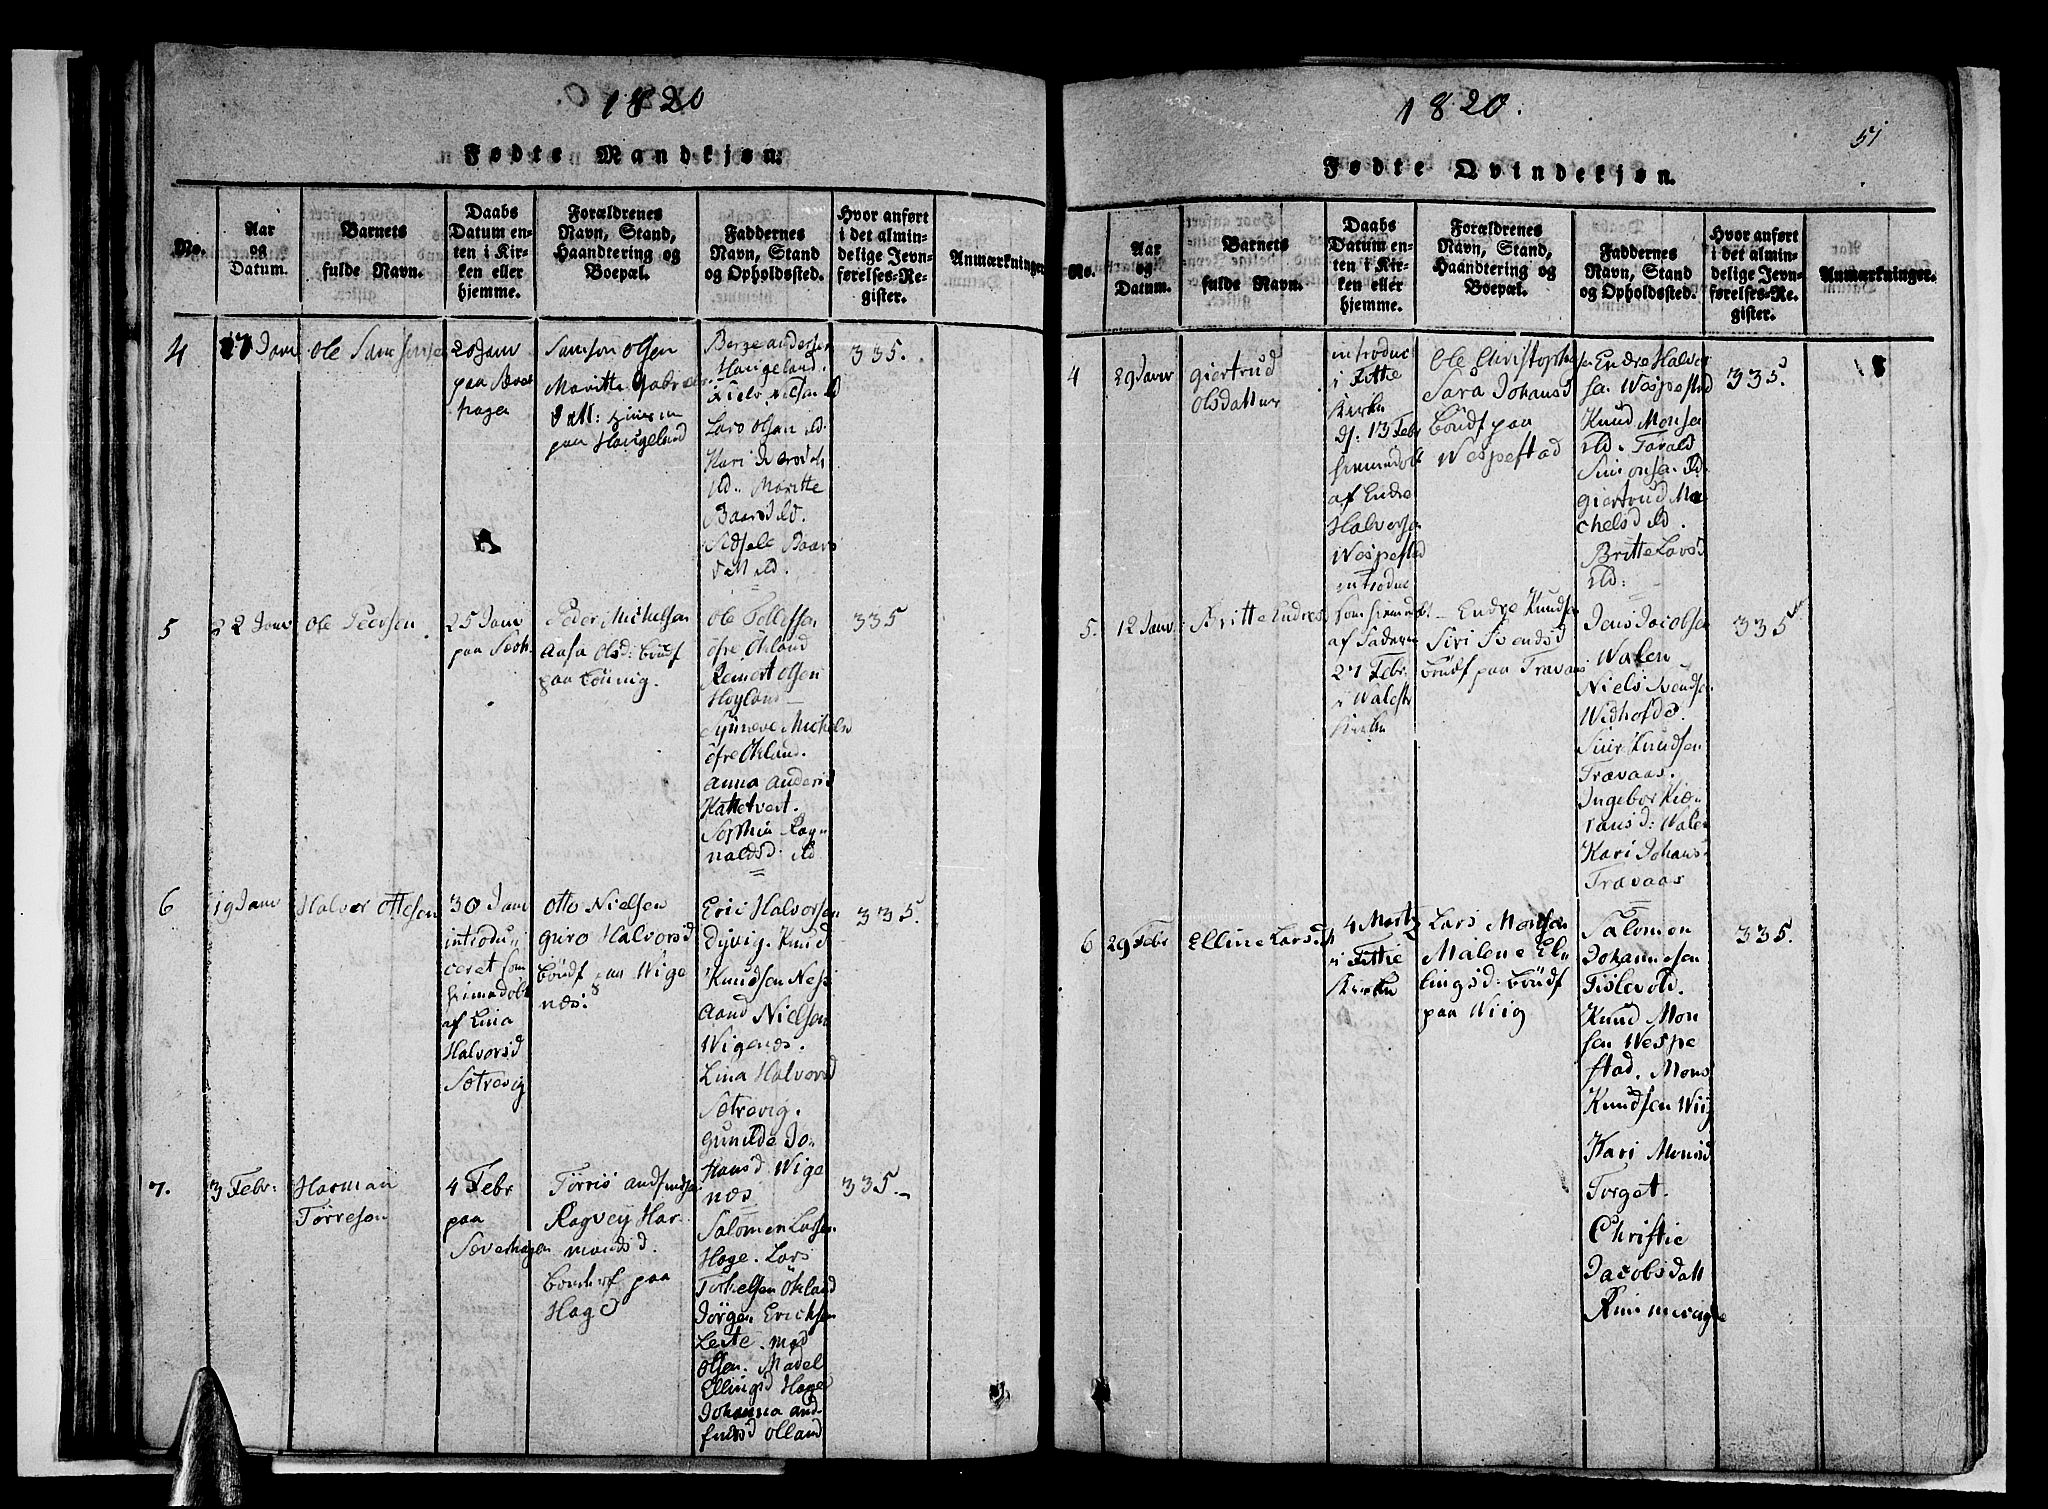 1820
Fødte Mandkjøn.
No.
Aar
og
Datum.
Barnets
fulde Navn.
Daabs
Datum en-
ten i Kir-
ken eller
hjemme.
Forældrenes
Navn, Stand,
Haandtering og
Boepæl.
Faddernes
Navn, Stand
og Opholdssted.
Hvor anført
i det almin-
delige Jevn-
førelses-Re-
gister.
Anmærkninger
4
17 Janv
Ole
20 Janv
paa
hagen
Samson Olsen
Maritte
paa Haugeland
Berge Anders
Haugeland.
Niels Nielsen ild
Lars Olsen ild.
Kari
ild. Maritte
Baarsd ild.
Baars
datt ild.
335.
5
22 Janv
Ole Peersen
25 Janv
paa
Peder Michelsen
Aasa Olsd: böndf
paa
Ole Tollefsen
öfre Økland
Reinert Olsen
Høyland
Synneve Michels
öfre Økland.
Anna Andersd
Hattetvert.
Sophia Rag-
naldsd. ild
335
6
19 Janv
Halvor Ottesen
30 Janv
introdu-
ceret som
hiemedøbt
af Lina
Halvorsd
Sætrevig
Otto Nielsen
Guro Halvorsd
böndf paa Wige
næs:
Eric Halvorsen
Dyvig. Knud
Knudsen Næss
Aand Nielsen
Wigenæs.
Lina Halvorsd
Sætrevig.
Gunilde Jo-
hansd Wige
næs
335.
7.
3 Febr:
Harman
Tørresen
4 Febr
paa
Tørris
Ragvey Har-
mansd.
paa
Hage
Salomon Larsen
Hage. Lars
Torkelsen Økland
Jörgen Ericksen
Leite.
Olsen. Madel
Ellingsd Hage
Johanna And-
335.-
1820.
51
Fødte Qvindekjøn.
No.
Aar
og
Datum.
Barnets
fulde Navn.
Daabs
Datum en-
ten i Kir-
ken eller
hjemme.
Forældrenes
Navn, Stand,
Haandtering og
Boepæl.
Faddernes
Navn, Stand
og Opholdssted.
Hvor anført
i det almin-
delige Jevn-
førelses-Re-
gister.
Anmærkninger.
4
29 Janv
Giertrud
Olsdatter
introduc
i Fittie
Kirke
d: 13 Febr
hiemmedøbt
af Endre
Halvorsen
Wespestad
Ole Christophe
Sara Johansd
böndf paa
Wespestad
Endre Halvor
sen Wespestad
Knud Monsen
ild. Tarald
Simonsen ild.
Giertrud Mi
chelsd ild.
Britte Larsd
ild:
335.
5.
12 Janv
Britte Endresd
introduc
som hiemmdøbt
af Faderen
27 Febr.
i Walestr
Kirke
Endre Knudsen
Siri Svendsd
böndf paa Travaas
Jens Jacobsen
Walen
Niels Svendsen
Widhofde.
Knudsen
Travaas.
Ingebor
Walen
Kari Johans-
Travaas
335
6
29 Febr
Elline Larsd
4 Marty
i Fittie
Kirke
Lars Monsen
Malene El-
lingsd: böndf
paa Wiig
Salomon
Johannesen
Tislevold.
Knud Mon
sen Wespe
stad. Mons
Knudsen Wiig
Kari Monsd
Torget.
Christie
Jacobsdatt
335.